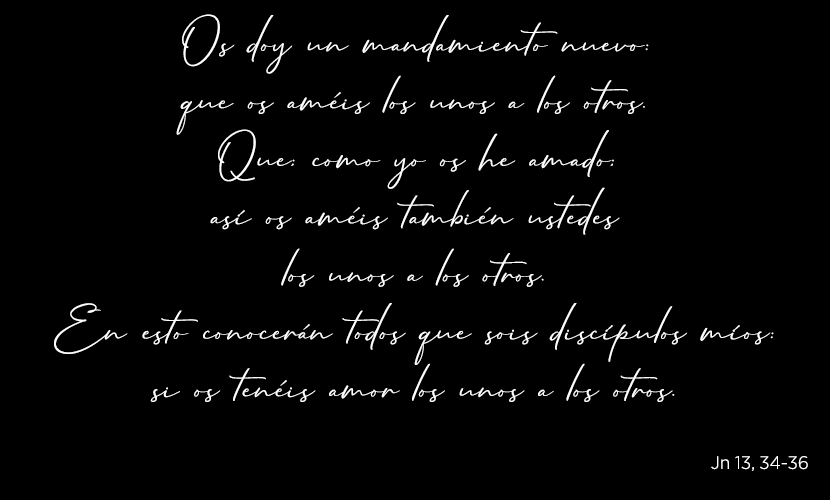 Os doy un mandamiento nuevo:
que os améis los unos a los otros.
Que; como yo os he amado;
así os améis también ustedes
los unos a los otros.
En esto conocerán todos que sois discípulos míos:
si os tenéis amor los unos a los otros.
Jn 13, 34-36